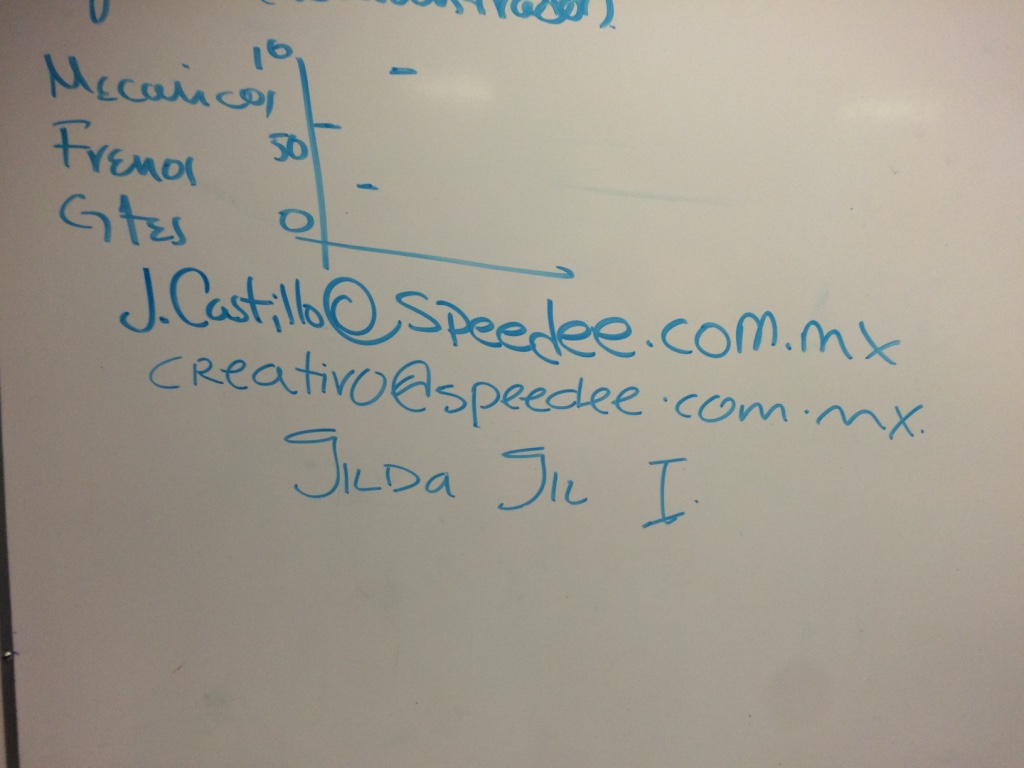 Mecanicos 10
Frenos 50
Gtes 0
J.Castillo@speedee.com.mx
creativo@speedee.com.mx.
Gilda Gil I.